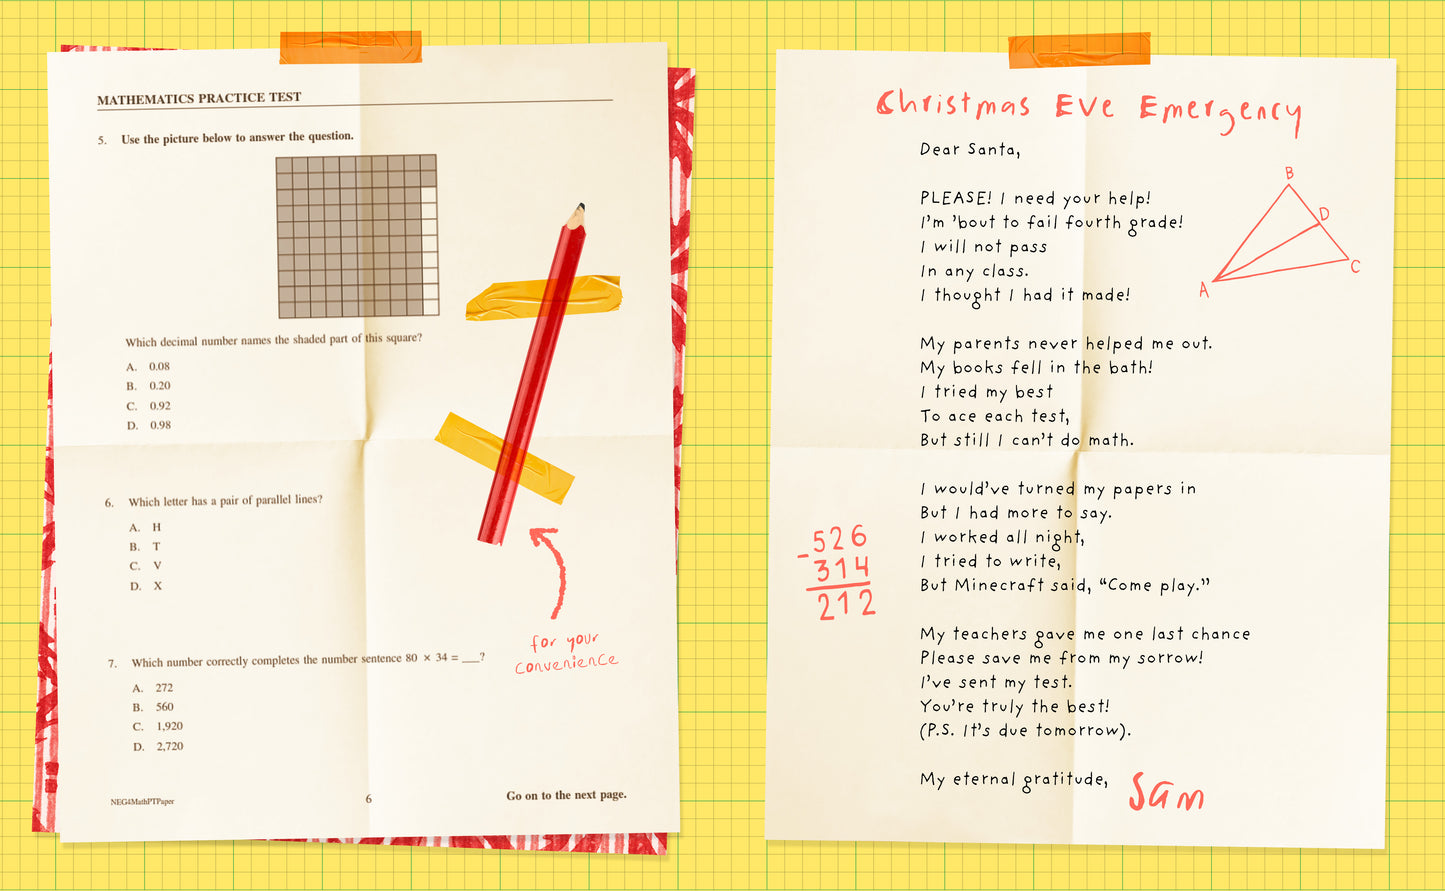 MATHEMATICS PRACTICE TEST
5. Use the picture below to answer the question.
Which decimal number names the shaded part of this square?
A. 0.08
B. 0.20
C. 0.92
D. 0.98
6. Which letter has a pair of parallel lines?
A. H
B. T
C. V
D. X
7. Which number correctly completes the number sentence 80 × 34 = __?
A. 272
B. 560
C. 1,920
D. 2,720
for your
convenience
NEG4MathPTPaper
6
Go on to the next page.
Christmas Eve Emergency
Dear Santa,
PLEASE! I need your help!
I'm 'bout to fail fourth grade!
I will not pass
In any class.
I thought I had it made!
B
D
C
A
My parents never helped me out.
My books fell in the bath!
I tried my best
To ace each test,
But still I can't do math.
I would've turned my papers in
But I had more to say.
I worked all night,
I tried to write,
But Minecraft said, “Come play.”
526
- 314
212
My teachers gave me one last chance
Please save me from my sorrow!
I've sent my test.
You're truly the best!
(P.S. It's due tomorrow).
My eternal gratitude,
Sam